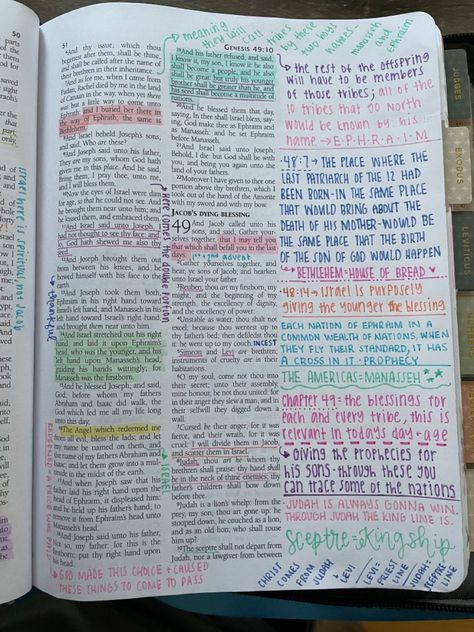 50
51
GENESIS 49:10
meaning they will call tribes by these two boys names: manasseh and Ephraim
And thy issue, which thou
begettest after them, shall be thine,
and shall be called after the name of
their brethren in their inheritance.
And as for me, when I came from
Padan, Rachel died by me in the land
of Canaan in the way, when yet there
was but a little way to come unto
Ephrath: and I buried her there in
the way of Ephrath; the same is
Bethlehem.
And Israel beheld Joseph's sons,
and said, Who are these?
And Joseph said unto his father,
They are my sons, whom God hath
given me in this place. And he said,
Bring them, I pray thee, unto me,
and I will bless them.
Now the eyes of Israel were dim
for age, so that he could not see. And
he brought them near unto him; and
he kissed them, and embraced them.
And Israel said unto Joseph, I
had not thought to see thy face: and,
lo, God hath shewed me also thy
seed.
And Joseph brought them out
from between his knees, and he
bowed himself with his face to the
earth.
And Joseph took them both,
Ephraim in his right hand toward
Israel's left hand, and Manasseh in his
left hand toward Israel's right hand,
and brought them near unto him.
And Israel stretched out his right
hand, and laid it upon Ephraim's
head, who was the younger, and his
left hand upon Manasseh's head,
guiding his hands wittingly; for
Manasseh was the firstborn.
And he blessed Joseph, and said,
God, before whom my fathers
Abraham and Isaac did walk, the
God which fed me all my life long
unto this day,
The Angel which redeemed me
from all evil, bless the lads; and let
my name be named on them, and
the name of my fathers Abraham and
Isaac; and let them grow into a multitude
in the midst of the earth.
And when Joseph saw that his
father laid his right hand upon the
head of Ephraim, it displeased him:
and he held up his father's hand, to
remove it from Ephraim's head unto
Manasseh's head.
And Joseph said unto his father,
Not so, my father: for this is the
firstborn; put thy right hand upon
his head.
And his father refused, and said,
I know it, my son, I know it: he also
shall become a people, and he also
shall be great: but truly his younger
brother shall be greater than he, and
his seed shall become a multitude of
nations.
And he blessed them that day,
saying, In thee shall Israel bless, saying,
God make thee as Ephraim and
as Manasseh: and he set Ephraim
before Manasseh.
And Israel said unto Joseph,
Behold, I die: but God shall be with
you, and bring you again unto the
land of your fathers.
Moreover I have given to thee one
portion above thy brethren, which I
took out of the hand of the Amorite
with my sword and with my bow.
JACOB'S DYING BLESSING
49 And Jacob called unto his
sons, and said, Gather yourselves
together, that I may tell you
that which shall befall you in the last
days. → 2nd advent
Gather yourselves together, and
hear, ye sons of Jacob; and hearken
unto Israel your father.
Reuben, thou art my firstborn, my
might, and the beginning of my
strength, the excellency of dignity,
and the excellency of power:
Unstable as water, thou shalt not
excel; because thou wentest up to
thy father's bed; then defiledst thou
it: he went up to my couch. INCEST
Simeon and Levi are brethren;
instruments of cruelty are in their
habitations.
O my soul, come not thou into
their secret; unto their assembly,
mine honour, be not thou united: for
in their anger they slew a man, and in
their selfwill they digged down a
wall.
Cursed be their anger, for it was
fierce; and their wrath, for it was
cruel: I will divide them in Jacob,
and scatter them in Israel.
Judah, thou art he whom thy
brethren shall praise: thy hand shall
be in the neck of thine enemies; thy
father's children shall bow down
before thee.
Judah is a lion's whelp: from the
prey, my son, thou art gone up: he
stooped down, he couched as a lion,
and as an old lion; who shall rouse
him up?
The sceptre shall not depart from
Judah, nor a lawgiver from between
→ the rest of the offspring
will have to be members
of those tribes; all of the
10 tribes that go north
would be known by his
name → E-P-H-R-A-I-M
48:7 → THE PLACE WHERE THE
LAST PATRIARCH OF THE 12 HAD
BEEN BORN - IN THE SAME PLACE
THAT WOULD BRING ABOUT THE
DEATH OF HIS MOTHER - WOULD BE
THE SAME PLACE THAT THE BIRTH
OF THE SON OF GOD WOULD HAPPEN
↳ BETHLEHEM = HOUSE OF BREAD ♥
48:14 → Israel is purposely
giving the younger the blessing
EACH NATION OF EPHRAIM IN A
COMMON WEALTH OF NATIONS, WHEN
THEY FLY THEIR STANDARD, IT HAS
A CROSS IN IT - PROPHECY
THE AMERICAS = MANASSEH
Chapter 49 = the blessings for
each and every tribe, this is
relevant in todays day + age
↳ Giving the prophecies for
his sons - through these you
can trace some of the nations
JUDAH IS ALWAYS GONNA WIN.
THROUGH JUDAH THE KING LINE IS.
Sceptre = Kingship
CHRIST COMES FROM JUDAH + LEVI
LEVI = PRIEST LINE
JUDAH = SCEPTRE LINE
↳ GOD MADE THIS CHOICE + CAUSED
THESE THINGS TO COME TO PASS
Israel here is spiritual, not Jacob
thankful
ISRAEL
EXODUS
LEVITICUS